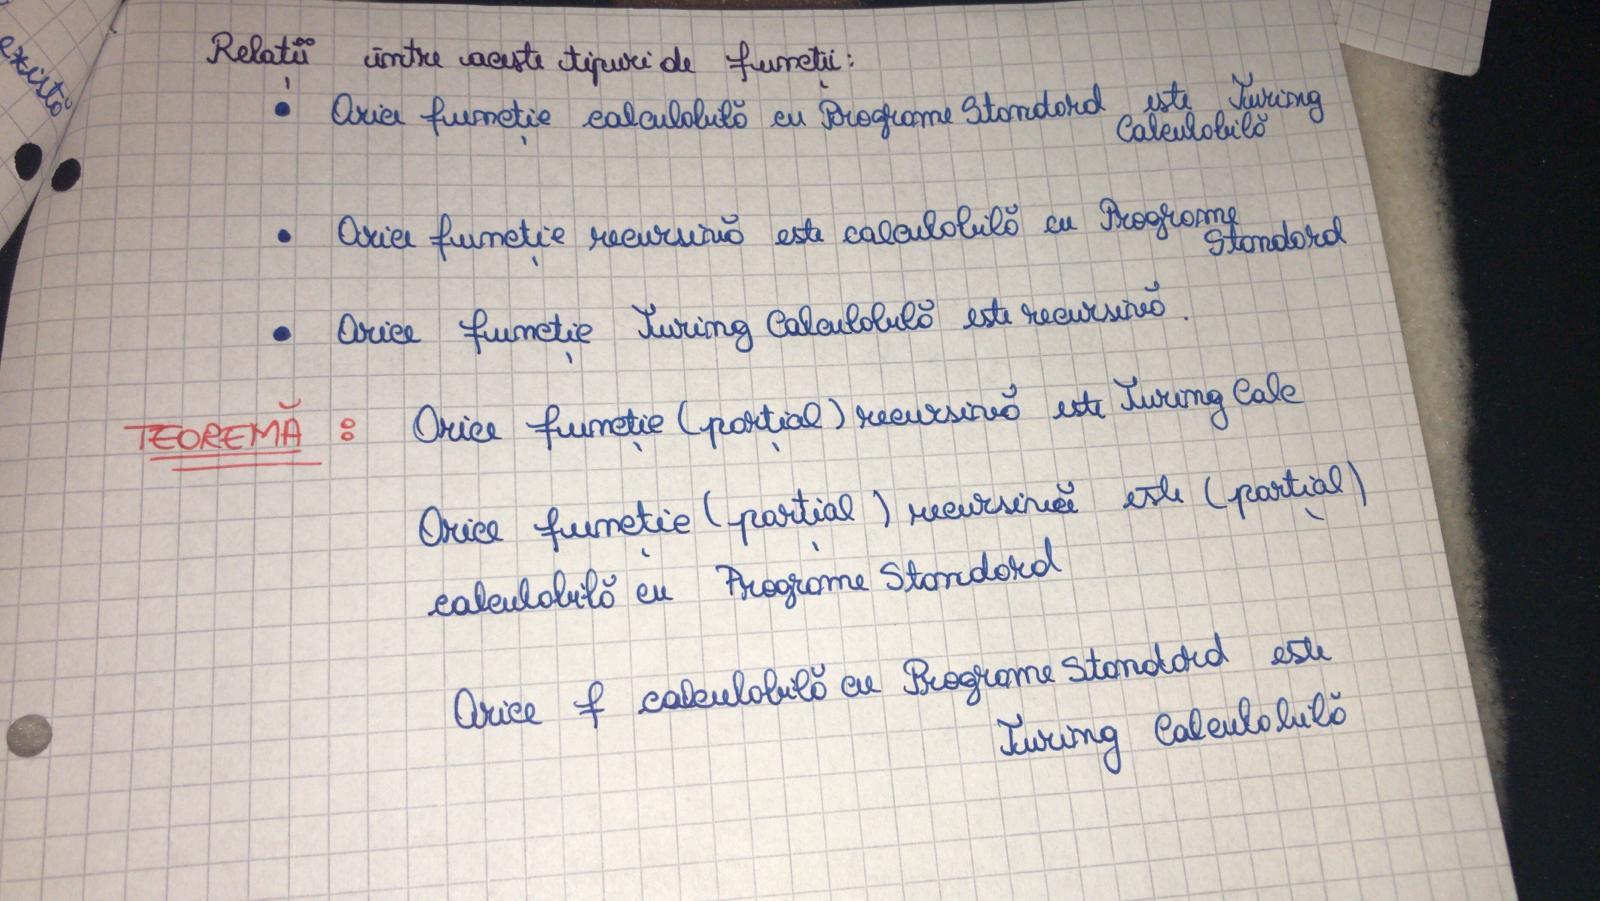 există
Relații între aceste tipuri de funcții:
• Orice funcție calculabilă cu Programe Standard este Turing
Calculabilă
• Orice funcție recursivă este calculabilă cu Programe
Standard
• Orice funcție Turing Calculabilă este recursivă.
TEOREMĂ : Orice funcție (parțial) recursivă este Turing Calc
Orice funcție (parțial) recursivă este (parțial)
calculabilă cu Programe Standard
Orice f calculabilă cu Programe Standard este
Turing Calculabilă